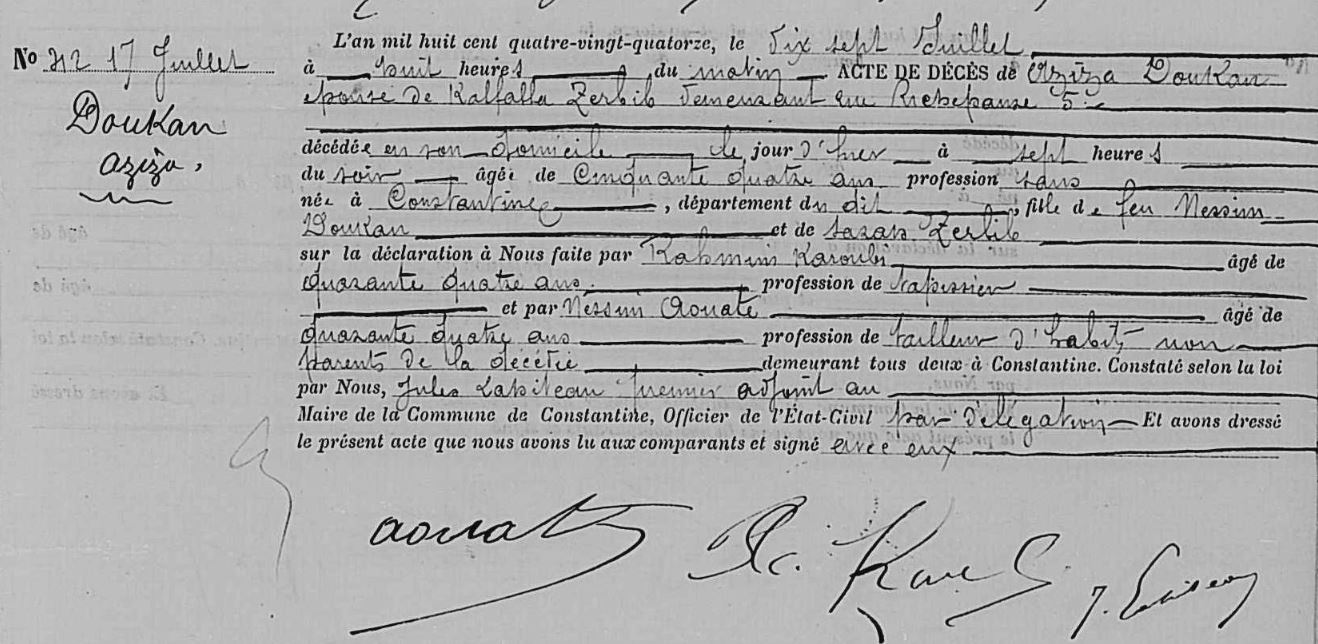 No 312 17 Juillet
Doukan
aziza,
L'an mil huit cent quatre-vingt-quatorze, le dix sept Juillet
à huit heures du matin ACTE DE DÉCÈS de Aziza Doukan
épouse de Kalfalla Zerbib demeurant rue 5
décédée en son domicile le jour d'hier à sept heures
du soir âgée de Cinquante quatre ans profession sans
née à Constantine, département du dit, fille de feu Nessim
Doukan et de Sarah Zerbib
sur la déclaration à Nous faite par Rahmim Karoubi âgé de
quarante quatre ans profession de tapissier
et par Nessim Aouate âgé de
quarante quatre ans profession de tailleur d'habits non
parents de la décédée demeurant tous deux à Constantine. Constaté selon la loi
par Nous, Jules premier adjoint au
Maire de la Commune de Constantine, Officier de l'État-Civil par délégation Et avons dressé
le présent acte que nous avons lu aux comparants et signé avec eux
aouate R. J.